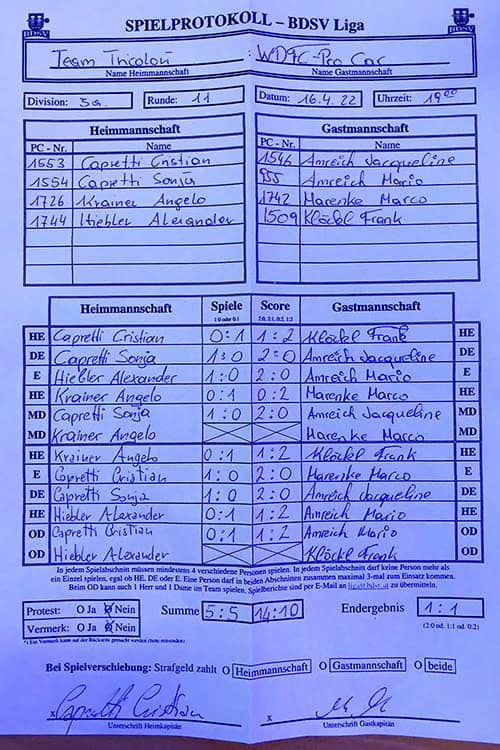 BDSV SPIELPROTOKOLL – BDSV Liga BDSV
Team Tricolori : WD9C-Pro Car
Name Heimmannschaft Name Gastmannschaft
Division: 3a Runde: 11 Datum: 16.4.22 Uhrzeit: 19 00
Heimmannschaft Gastmannschaft
PC - Nr. Name PC - Nr. Name
1553 Capretti Cristian 1546 Amreich Jacqueline
1554 Capretti Sonja 955 Amreich Mario
1726 Krainer Angelo 1742 Marenke Marco
1744 Hiebler Alexander 1509 Klöckl Frank
Heimmannschaft Spiele Score Gastmannschaft
1:0 oder 0:1 2:0, 2:1, 0:2, 1:2
HE Capretti Cristian 0:1 1:2 Klöckl Frank HE
DE Capretti Sonja 1:0 2:0 Amreich Jacqueline DE
E Hiebler Alexander 1:0 2:0 Amreich Mario E
HE Krainer Angelo 0:1 0:2 Marenke Marco HE
MD Capretti Sonja 1:0 2:0 Amreich Jacqueline MD
MD Krainer Angelo Marenke Marco MD
HE Krainer Angelo 0:1 1:2 Klöckl Frank HE
E Capretti Cristian 1:0 2:0 Marenke Marco E
DE Capretti Sonja 1:0 2:0 Amreich Jacqueline DE
HE Hiebler Alexander 0:1 1:2 Amreich Mario HE
OD Capretti Cristian 0:1 1:2 Amreich Mario OD
OD Hiebler Alexander Klöckl Frank OD
In jedem Spielabschnitt müssen mindestens 4 verschiedene Personen spielen. In jedem Spielabschnitt darf keine Person mehr als
ein Einzel spielen, egal ob HE, DE oder E. Eine Person darf in beiden Abschnitten zusammen maximal 3-mal zum Einsatz kommen.
Beim OD kann auch 1 Herr und 1 Dame im Team spielen. Spielberichte sind per E-Mail an liga@bdsv.at zu übermitteln.
Protest: O Ja O Nein Summe 5:5 14:10 Endergebnis 1:1
Vermerk: O Ja O Nein (2:0 od. 1:1 od. 0:2)
*) Ein Vermerk kann auf der Rückseite gemacht werden (bitte mitsenden)
Bei Spielverschiebung: Strafgeld zahlt O Heimmannschaft O Gastmannschaft O beide
x Capretti Cristian x
Unterschrift Heimkapitän Unterschrift Gastkapitän